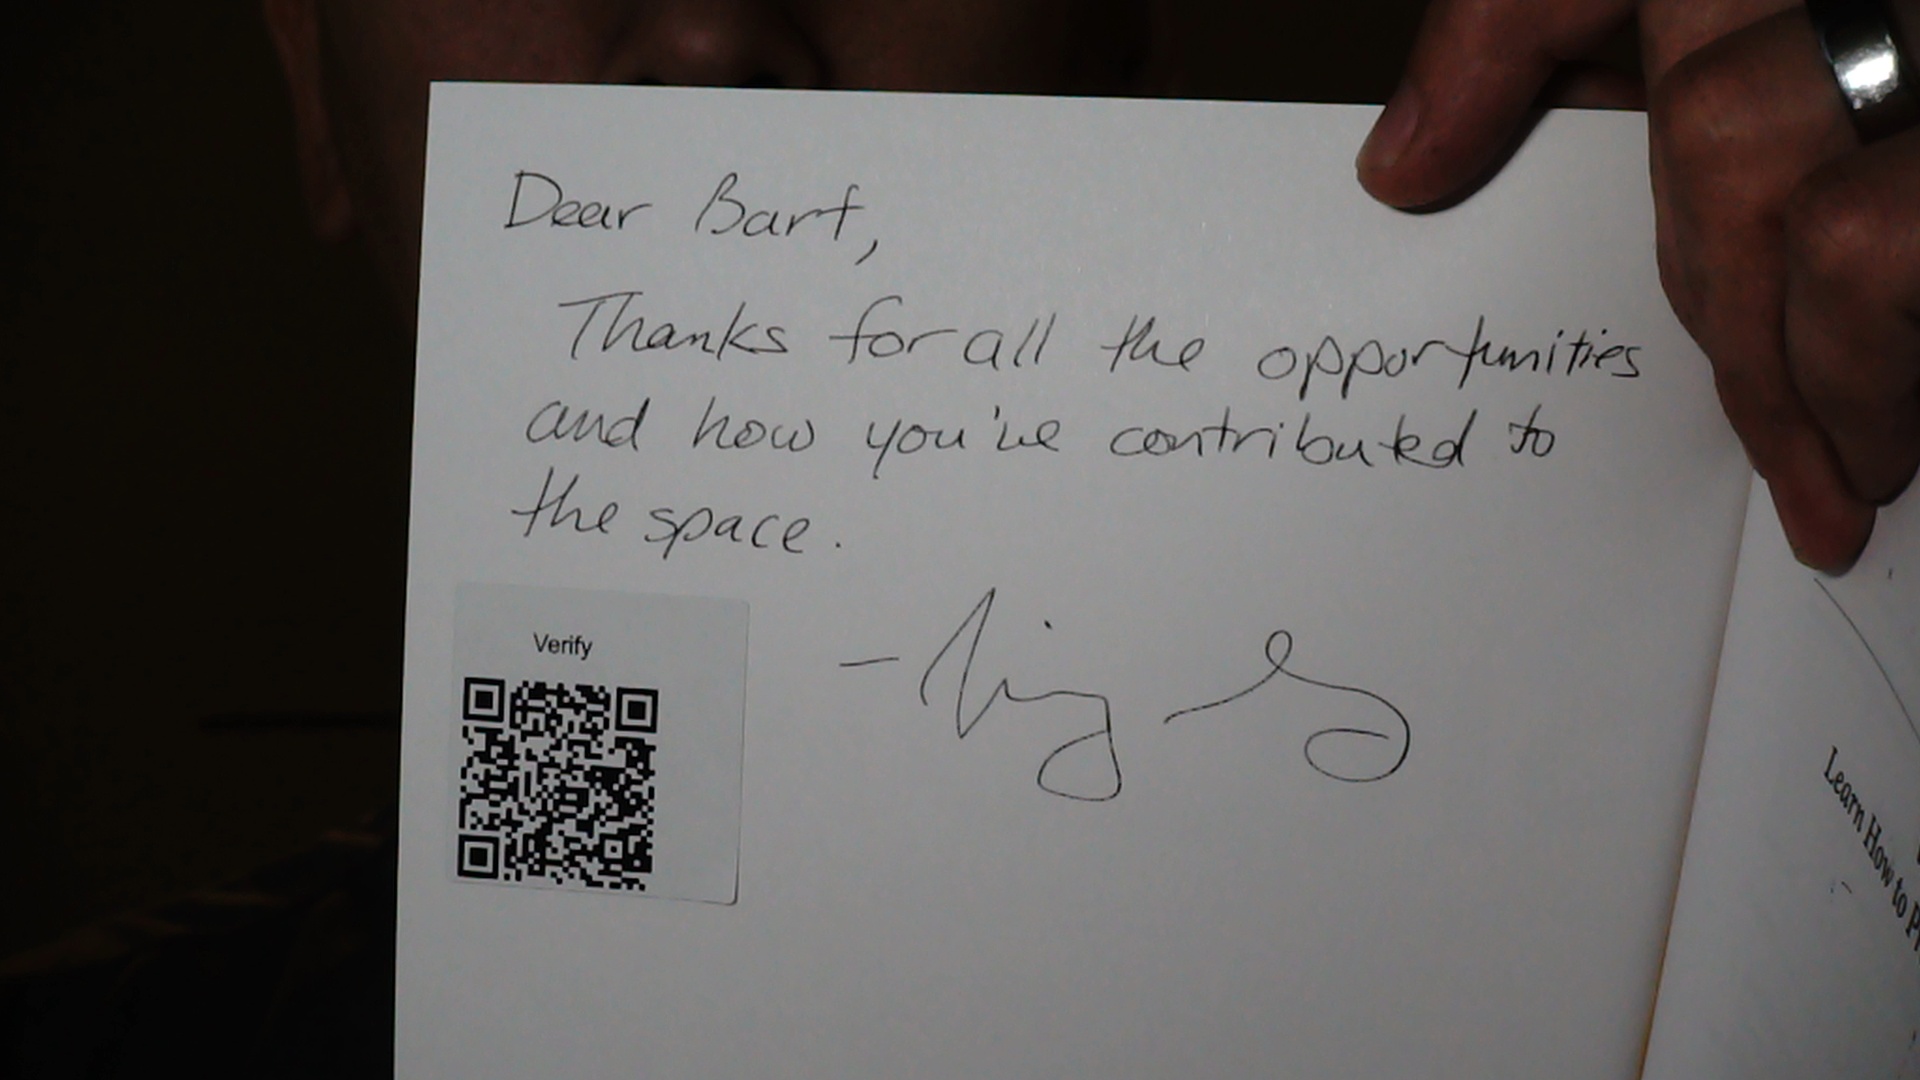 Dear Bart,
Thanks for all the opportunities
and how you've contributed to
the space.
Verify
Learn How to